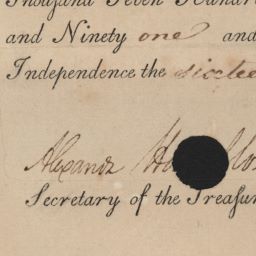 Thousand Seven Hundr
and Ninety one and
Independence the sixtee
Alexandr Ha
Secretary of the Treasur